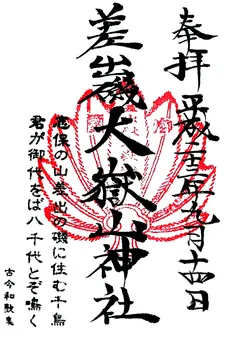 奉拝 平成二十三年九月十四日
差出磯大嶽山神社
志保の山差出の磯に住む千鳥
君が御代をば八千代とぞ鳴く
古今和歌集